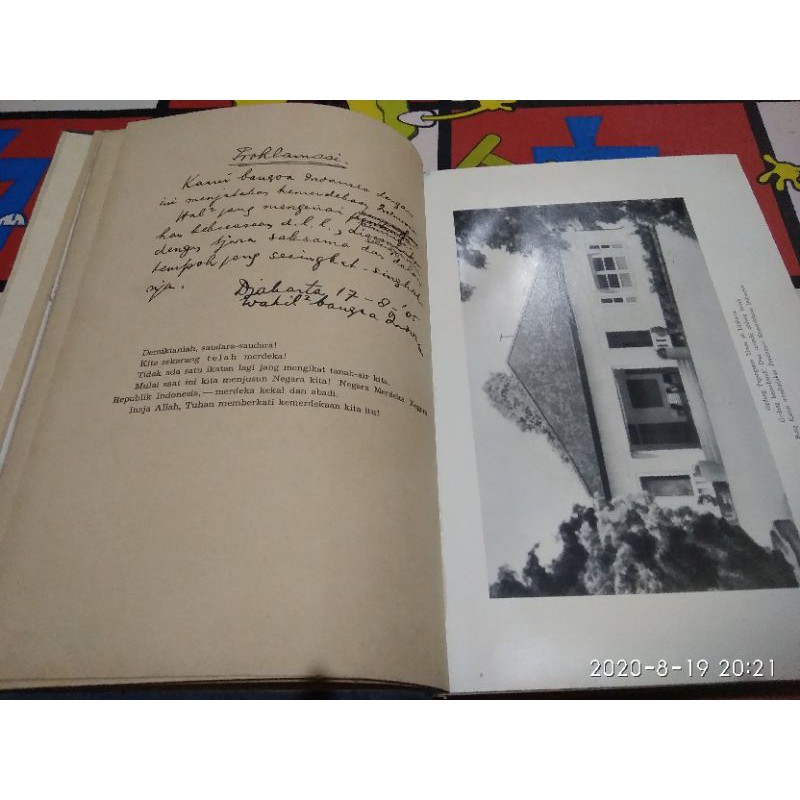 Proklamasi.
Kami bangsa Indonesia dengan
ini menjatakan kemerdekaan
Hal² jang mengenai
kekoeasaan d.l.l.,
dengan tjara saksama dan
tempoh jang sesingkat-singkat-
nja.
Djakarta 17-8-'05
Wakil² bangsa
Demikianlah, saudara-saudara!
Kita sekarang telah merdeka!
Tidak ada satu ikatan lagi jang mengikat tanah-air kita.
Mulai saat ini kita menjusun Negara kita! Negara Merdeka. Negara
Republik Indonesia,— merdeka kekal dan abadi.
Insja Allah, Tuhan memberkati kemerdekaan kita itu!
2020-8-19 20:21